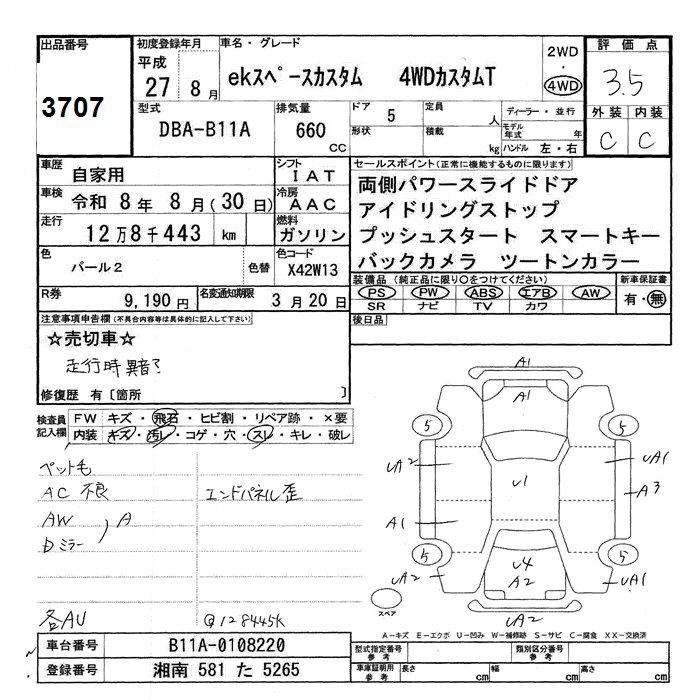 出品番号
3707
初度登録年月
平成
27 8月
車名・グレード
ekスペースカスタム 4WDカスタムT
2WD
・
4WD
評価点
3.5
外装 内装
C C
型式
DBA-B11A
排気量
660 CC
ドア 5
形状
定員 人
積載 kg
ディーラー・並行
モデル年式 年
ハンドル 左・右
車歴
自家用
シフト
IAT
車検
令和 8年 8月(30日)
冷房
AAC
走行
12万8千443 km
燃料
ガソリン
色
パール2 色替
色コード
X42W13
R券
9,190円
名変通知期限
3月20日
セールスポイント(正常に機能するものに限ります)
両側パワースライドドア
アイドリングストップ
プッシュスタート スマートキー
バックカメラ ツートンカラー
装備品(純正品に限り○をつけてください)
PS PW ABS エアB AW
SR ナビ TV カワ
新車保証書
有・無
後日品
注意事項申告欄(不具合内容等は具体的に記入して下さい)
☆売切車☆
走行時異音?
修復歴 有〔箇所 〕
検査員
記入欄
FW キズ・飛石・ヒビ割・リペア跡・×要
内装 キズ・汚レ・コゲ・穴・スレ・キレ・破レ
ペット毛
AC 不良 エンドパネル歪
AW
Dミラー ) A
各AU @128445K
A1
A1
5 5
UA2 U1 UA1
A3
A1
5 5
U4
A2
UA2 UA1
UA2
スペア
A-キズ E-エクボ U-凹み W-補修跡 S-サビ C-腐食 XX-交換済
車台番号 B11A-0108220
登録番号 湘南 581 た 5265
型式指定番号
参考
類別区分番号
参考
車庫証明用
参考
長さ cm 幅 cm 高さ cm